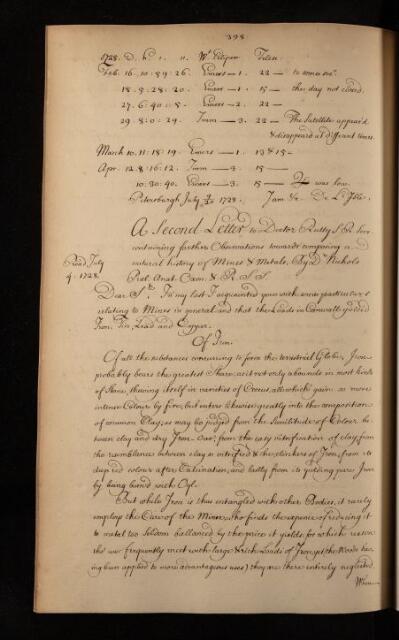 398
1728. D. h. ' . ". Wt. Telescpe. Tubus.
Feb. 16. 10: 39: 26. Emers — 1. 22 —
18. 5: 28: 20. Emers — 1. 15 — the day not closed.
27. 6: 40: 8. Emers — 2. 22 —
29. 8: 0: 29. Imm — 3. 22 — The Satellite appear'd
& disappear'd at different times.
March 10. 11: 18: 19. Emers — 1. 13 & 15 —
Apr. 12. 8: 16: 12. Imm — 3. 15 —
10: 30: 40. Emers — 3. 15 — ♃ was low.
Petersburgh July 1728. I am &c. De L'Isle.
A Second Letter to Doctor Rutty S.R. Secr.
containing farther Observations towards composing a
Read July natural history of Mines & Metals. By Dr Nicholls
4. 1728. Prael. Anat. Oxon. & R.S.S.
Dear Sr. In my last I acquainted you with some particulars
relating to Mines in general and that the Loads in Cornwall yielded
Iron, Tin, Lead and Copper.
Of Iron.
Of all the substances concurring to form the terrestrial Globe, Iron
probably bears the greatest Share, as it not only abounds in most kinds
of Stone, shewing itself in varieties of Crocus, all which gain a more
intense Colour by fire, but enters likewise greatly into the composition
of common Clay; as may be judged from the Similitude of Colour be-
tween clay and dry Iron-Oar; from the easy vitrification of clay, from
the resemblance between clay so vitrified & the clinkers of Iron, from its
deep red colour after Calcination, and lastly from its yielding pure Iron
by being burn'd with Oyl.
But while Iron is thus entangled with other Bodies, it rarely
employs the Care of the Miner, who finds the expence of reducing it
to metal too seldom ballanced by the price it yields; for which reason
tho' we frequently meet with large & rich Loads of Iron, yet (the Woods hav-
ing been applied to more advantageous uses) they are there entirely neglected.
When